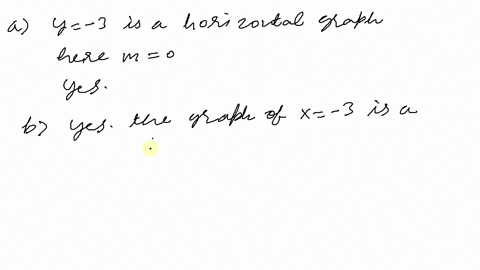 a) y=-3 is a horizontal graph
here m=0
Yes.
b) Yes. the graph of x=-3 is a